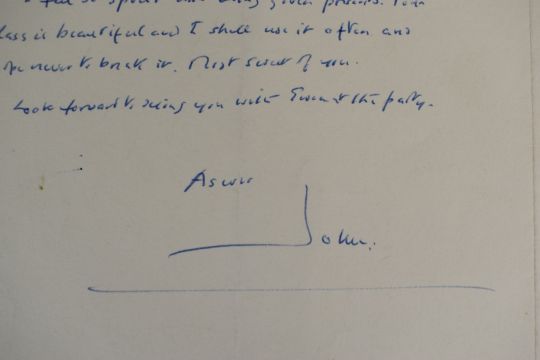 I feel so spoilt and being given presents. Your
lass is beautiful and I shall use it often and
never to break it. Most sweet of you.
Look forward to seeing you with at the party.
As ever
John.